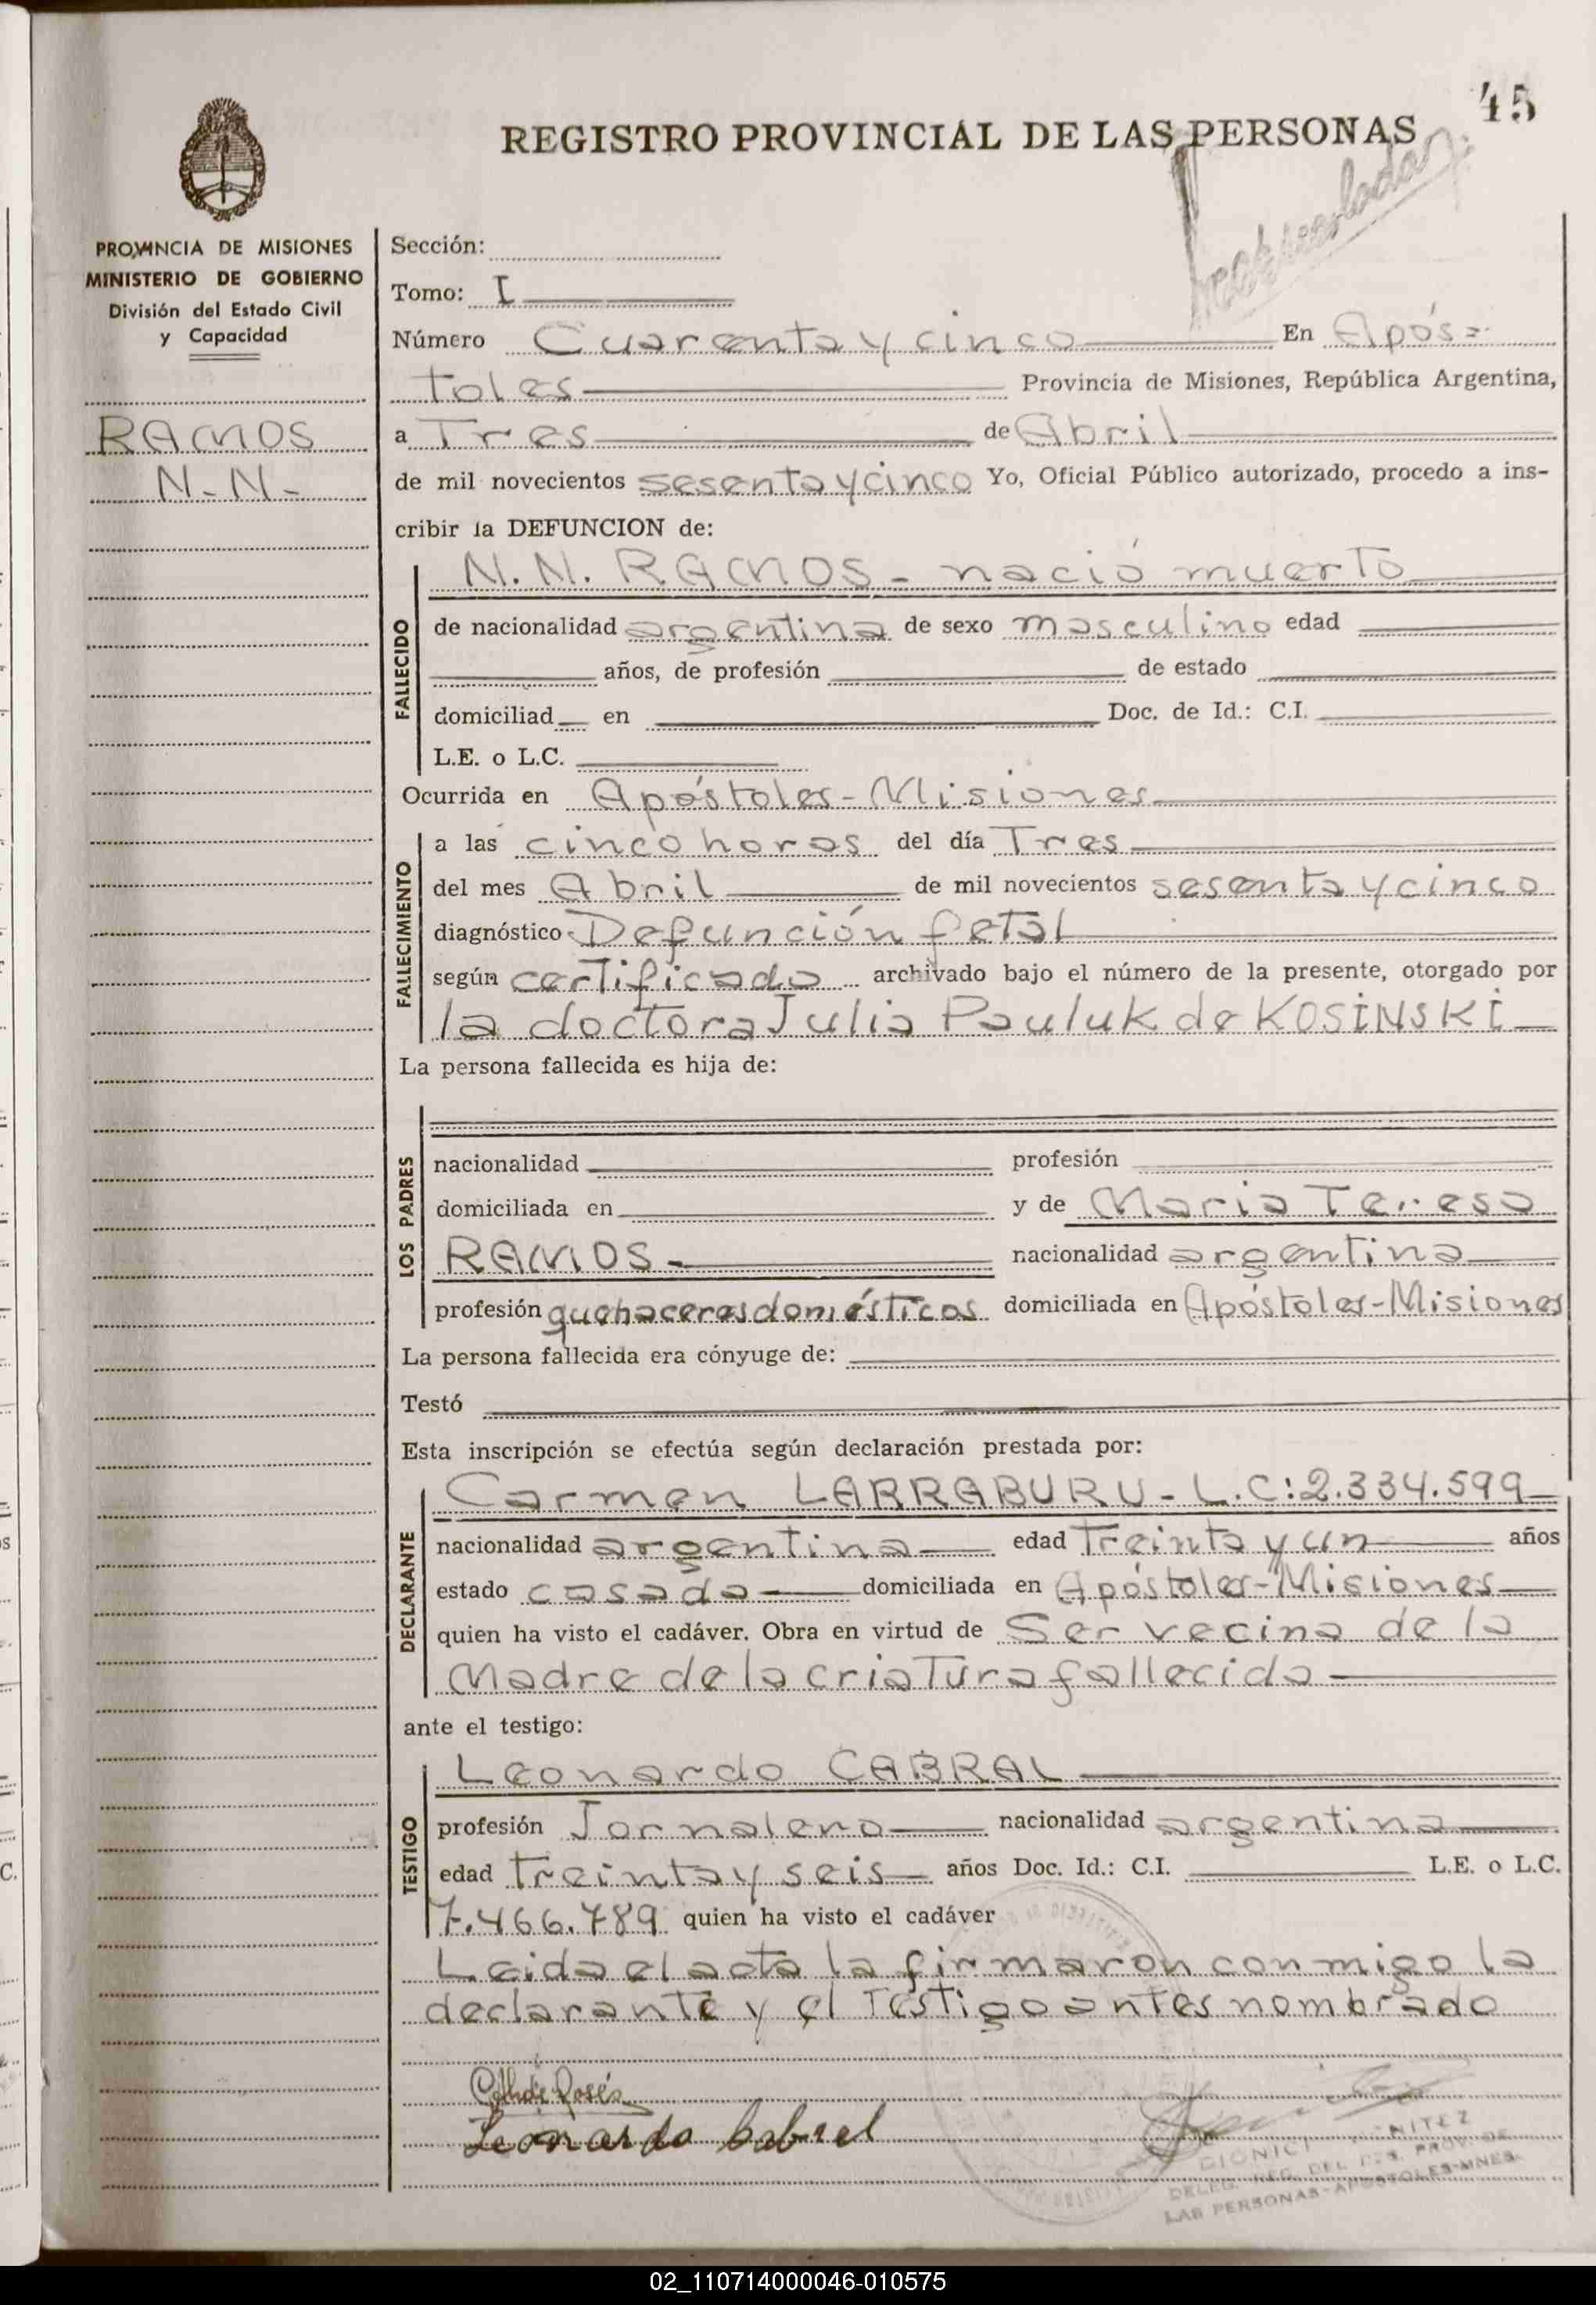 45
REGISTRO PROVINCIAL DE LAS PERSONAS
PROVINCIA DE MISIONES
MINISTERIO DE GOBIERNO
División del Estado Civil
y Capacidad
RAMOS
N.N.
Sección:
Tomo: I
Número Cuarenta y cinco En Após=
toles Provincia de Misiones, República Argentina,
a Tres de Abril
de mil novecientos sesenta y cinco Yo, Oficial Público autorizado, procedo a ins-
cribir la DEFUNCION de:
FALLECIDO
N.N. RAMOS - nació muerto
de nacionalidad argentina de sexo masculino edad
años, de profesión de estado
domiciliad en Doc. de Id.: C.I.
L.E. o L.C.
Ocurrida en Apóstoles - Misiones
FALLECIMIENTO
a las cinco horas del día Tres
del mes Abril de mil novecientos sesenta y cinco
diagnóstico Defunción fetal
según certificado archivado bajo el número de la presente, otorgado por
la doctora Julia Pauluk de KOSINSKI
La persona fallecida es hija de:
LOS PADRES
nacionalidad profesión
domiciliada en y de Maria Teresa
RAMOS - nacionalidad argentina
profesión quehaceres domésticos domiciliada en Apóstoles - Misiones
La persona fallecida era cónyuge de:
Testó
Esta inscripción se efectúa según declaración prestada por:
DECLARANTE
Carmen LARRABURU - L.C: 2.334.599
nacionalidad argentina edad Treinta y un años
estado casada domiciliada en Apóstoles - Misiones
quien ha visto el cadáver. Obra en virtud de Ser vecina de la
Madre de la criatura fallecida
ante el testigo:
TESTIGO
Leonardo CABRAL
profesión Jornalero nacionalidad argentina
edad Treinta y seis años Doc. Id.: C.I. L.E. o L.C.
7.466.789 quien ha visto el cadáver
Leida el acta la firmaron conmigo la
declarante y el Testigo antes nombrado
Leonardo Cabral
DELEG. REG. DEL PROV. DE
LAS PERSONAS-APOSTOLES-MNES.
02_110714000046-010575